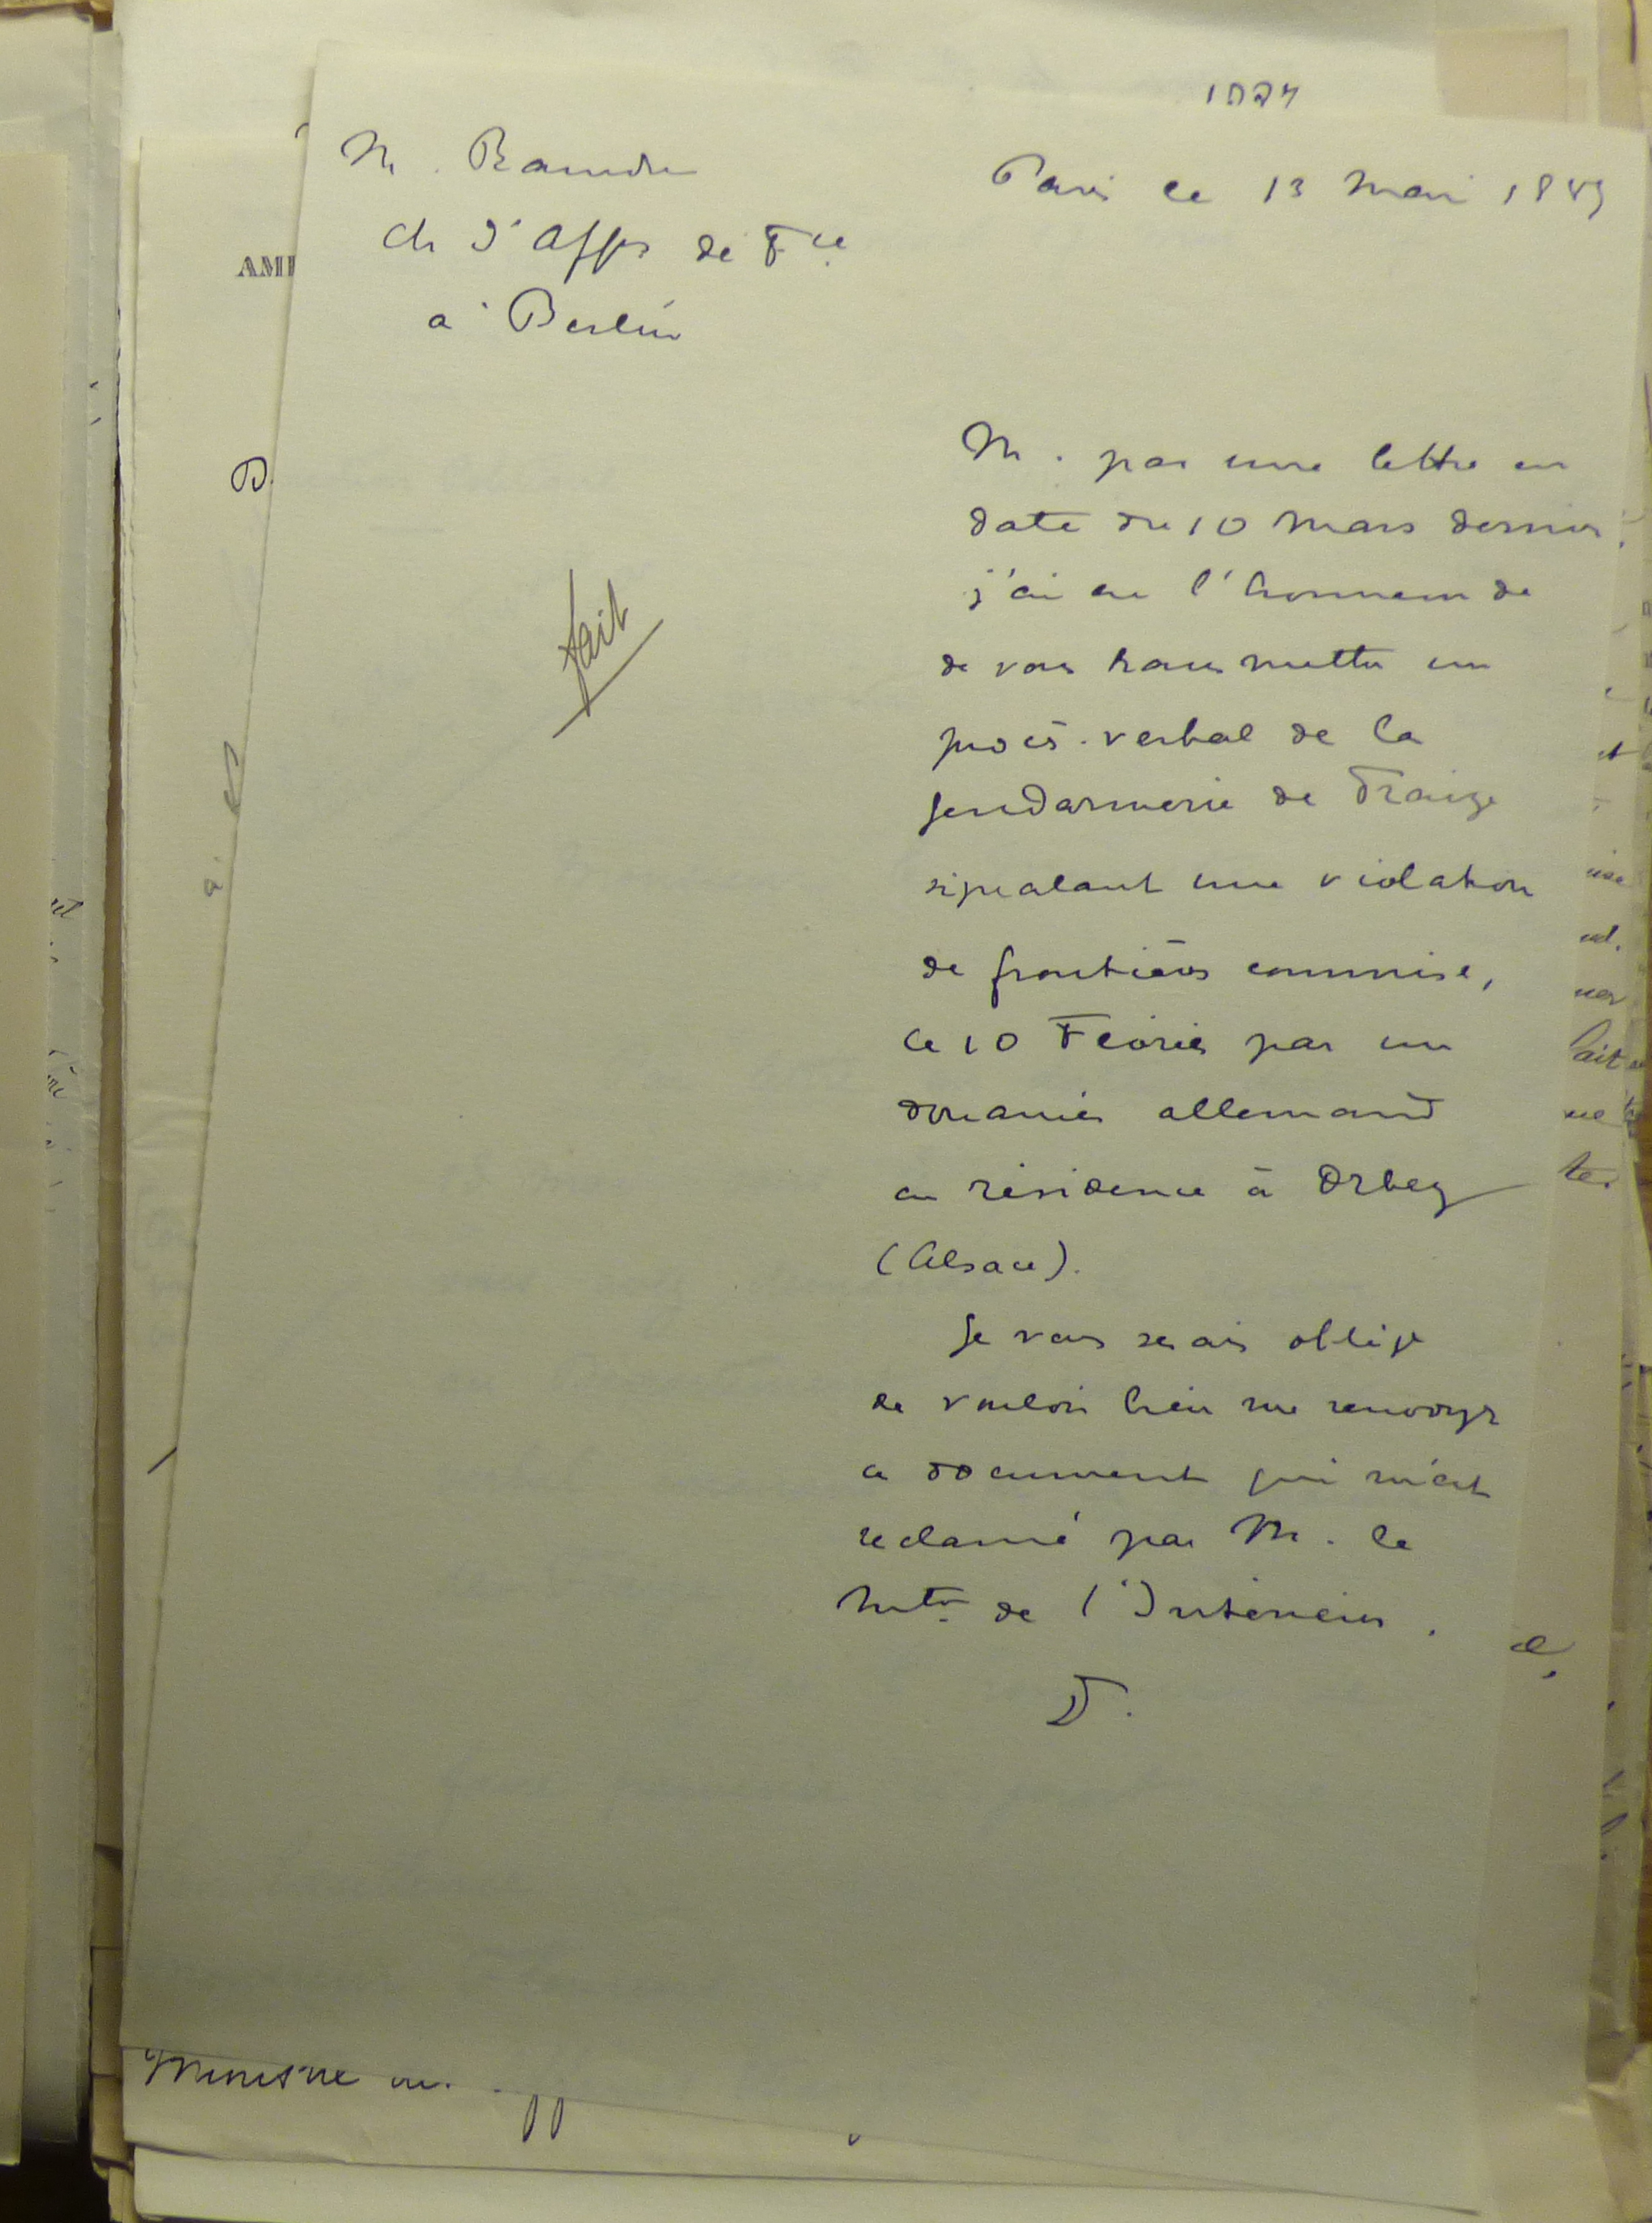 M. Raindre
ch d'affes de Fce
à Berlin
Paris le 13 mai 1889
AM
fait
M. par une lettre en
date du 10 mars dernier,
j'ai eu l'honneur de
de vous transmettre un
procès-verbal de la
gendarmerie de Fraize
signalant une violation
de frontière commise,
le 10 Février par un
douanier allemand
en résidence à Orbey
(Alsace).
Je vous serais obligé
de vouloir bien me renvoyer
ce document qui m'est
réclamé par M. le
Mtre de l'Intérieur.